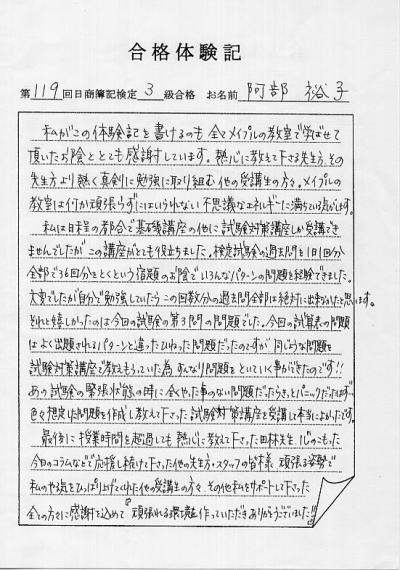 合格体験記
第119回日商簿記検定 3 級合格 お名前 阿部 裕子
私がこの体験記を書けるのも全てメイプルの教室で学ばせて
頂いたお陰ととても感謝しています。熱心に教えて下さる先生方、その
先生方より熱く真剣に勉強に取り組む他の受講生の方々。メイプルの
教室は何か頑張らずにはいられない不思議なエネルギーに満ちている気がします。
私は日程の都合で基礎講座の他に試験対策講座しか受講でき
ませんでしたがこの講座がとても役立ちました。検定試験の過去問を1日1回分
全部で36回分をとくという宿題のお陰でいろんなパターンの問題を経験できました。
大変でしたが自分で勉強していたらこの回数分の過去問全部は絶対に出来なかったと思います。
それと嬉しかったのは今回の試験の第3問の問題でした。今回の試算表の問題
はよく出題されるパターンと違ったひねった問題だったのですが、同じような問題を
試験対策講座で教えてもらっていた為、すんなり問題をといていく事ができたのです!!
あの試験の緊張状態の時に全くやった事のない問題だったらきっとパニックだったはず…
色々想定した問題を作成し教えて下さった試験対策講座を受講して本当によかったです。
最後に授業時間を超過しても熱心に教えて下さった田林先生、心のこもった
今日のコラムなどで応援し続けて下さった他の先生方・スタッフの皆様、頑張る姿勢で
私のやる気をひっぱり上げてくれた他の受講生の方々、その他私をサポートして下さった
全ての方々に感謝を込めて『頑張れる環境を作っていただきありがとうございました!!』